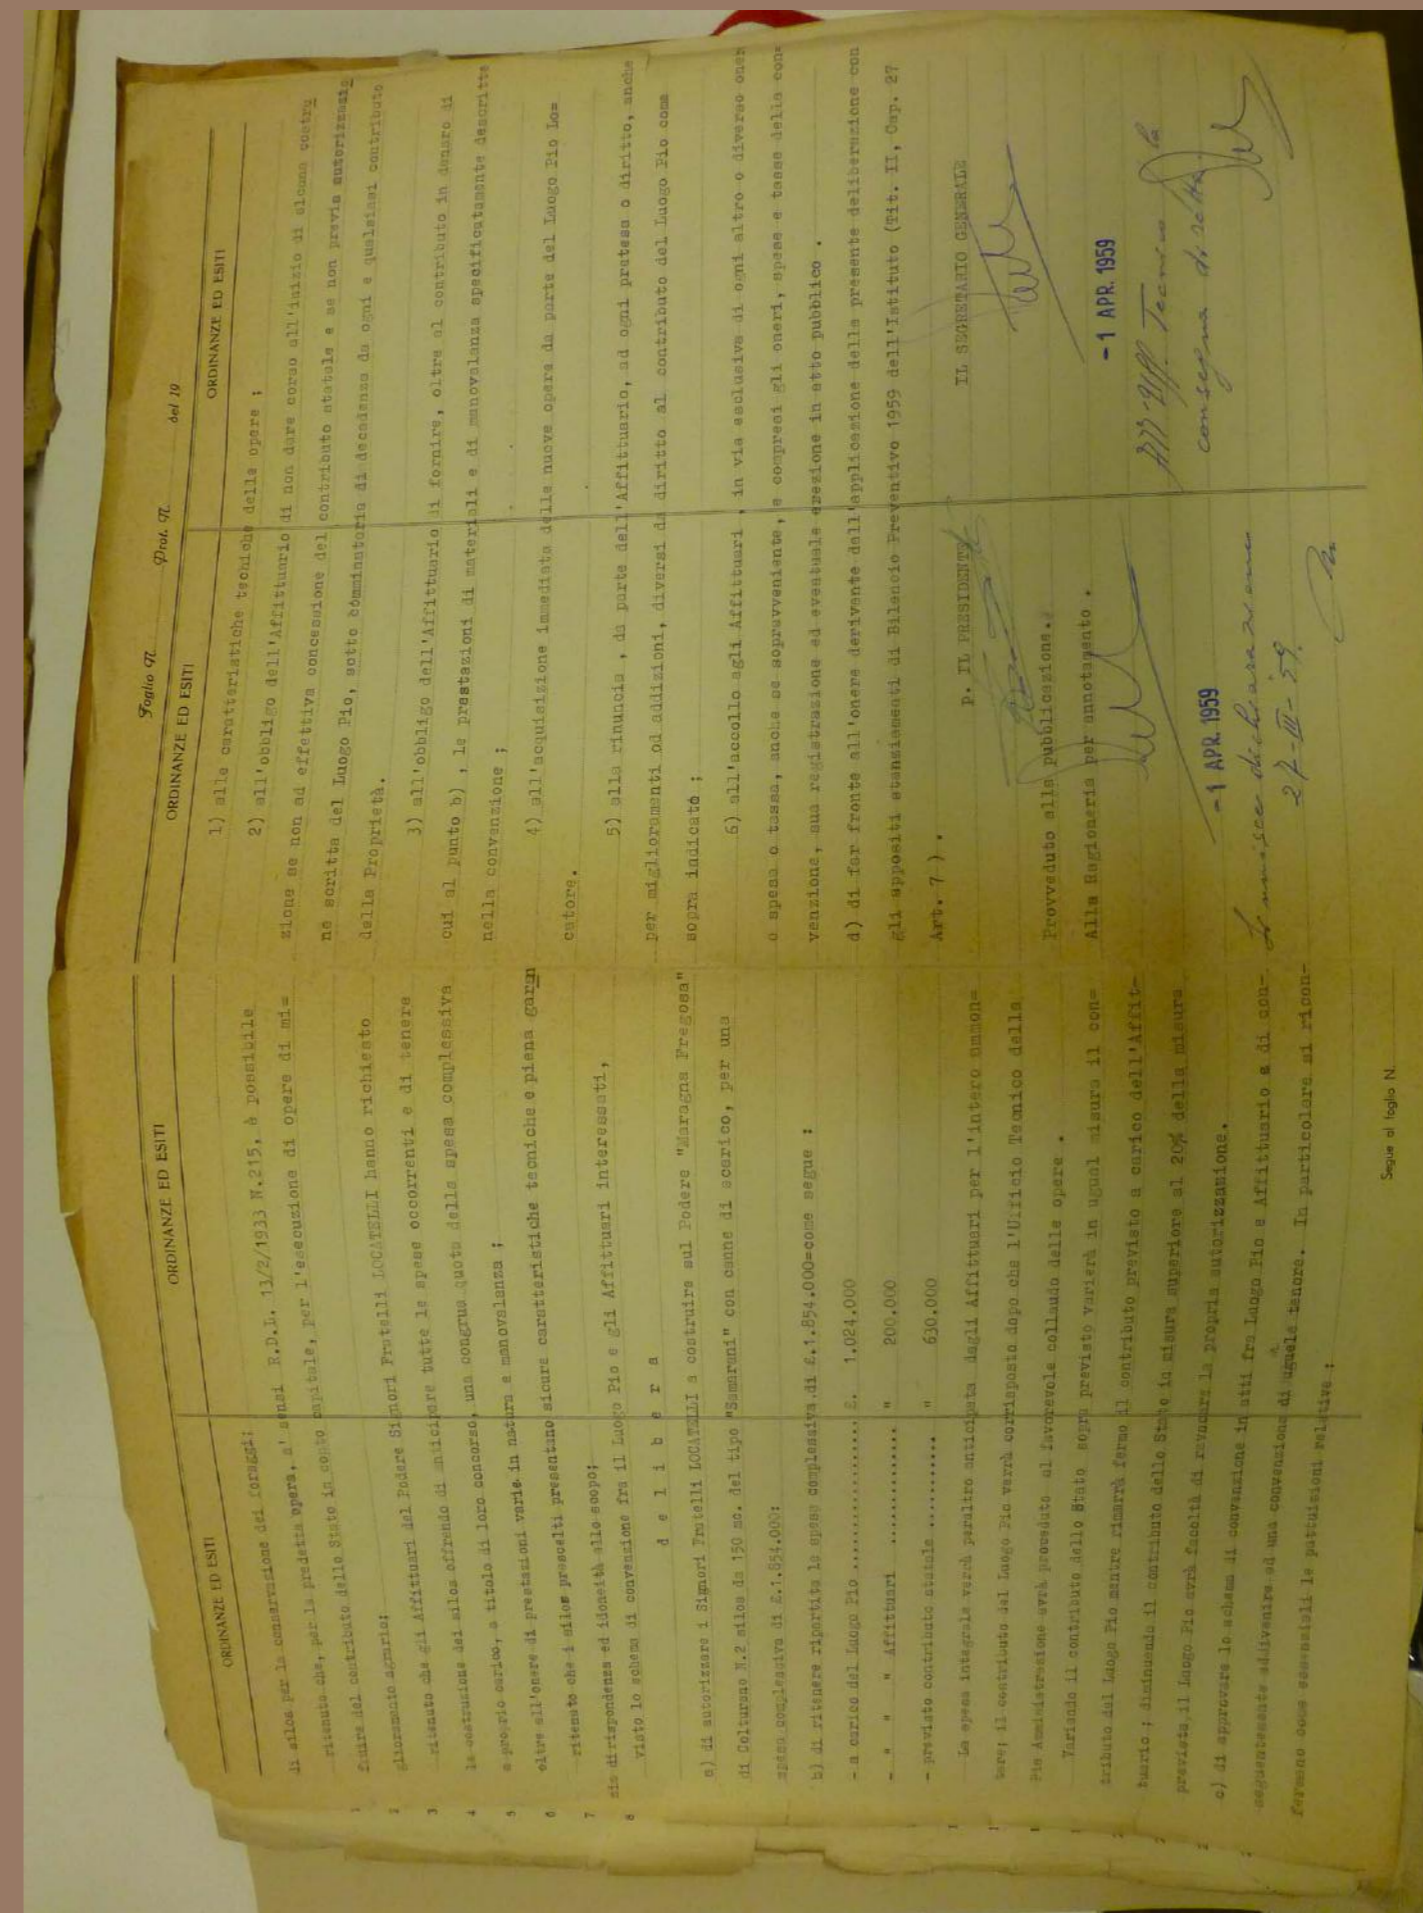 ORDINANZE ED ESITI
ORDINANZE ED ESITI
di silos per la conservazione dei foraggi;
ritenuto che, per la predetta opera, a' sensi R.D.L. 13/2/1933 N.215, è possibile
fruire del contributo dello Stato in conto capitale, per l'esecuzione di opere di mi=
glioramento agrario;
ritenuto che gli Affittuari del Podere Signori Fratelli LOCATELLI hanno richiesto
la costruzione dei silos offrendo di anticipare tutte le spese occorrenti e di tenere
a proprio carico, a titolo di loro concorso, una congrua quota della spesa complessiva
oltre all'onere di prestazioni varie in natura e manovalanza ;
ritenuto che i silos prescelti presentano sicure caratteristiche tecniche e piena garan
zia di rispondenza ed idoneità allo scopo;
visto lo schema di convenzione fra il Luogo Pio e gli Affittuari interessati,
d e l i b e r a
a) di autorizzare i Signori Fratelli LOCATELLI a costruire sul Podere "Maragna Fregosa"
di Colturano N.2 silos da 150 mc. del tipo "Samarani" con canne di scarico, per una
spesa complessiva di £.1.854.000:
b) di ritenere ripartita la spesa complessiva di £.1.854.000=come segue :
- a carico del Luogo Pio ................. £. 1.024.000
- " " " Affittuari ............... " 200.000
- previsto contributo statale ........... " 630.000
La spesa integrale verrà peraltro anticipata dagli Affittuari per l'intero ammon=
tare; il contributo del Luogo Pio verrà corrisposto dopo che l'Ufficio Tecnico della
Pia Amministrazione avrà proceduto al favorevole collaudo delle opere .
Variando il contributo dello Stato sopra previsto varierà in ugual misura il con=
tributo del Luogo Pio mentre rimarrà fermo il contributo previsto a carico dell'Affit-
tuario ; diminuendo il contributo dello Stato in misura superiore al 20% della misura
prevista, il Luogo Pio avrà facoltà di revocare la propria autorizzazione.
c) di approvare lo schema di convenzione in atti fra Luogo Pio e Affittuario e di con-
seguentemente addivenire ad una convenzione di uguale tenore. In particolare si ricon-
fermano come essenziali le pattuizioni relative :
Segue al foglio N.
Foglio N. Prot. N. del 19
ORDINANZE ED ESITI
ORDINANZE ED ESITI
1) alle caratteristiche techiche delle opere ;
2) all'obbligo dell'Affittuario di non dare corso all'inizio di alcuna costru
zione se non ad effettiva concessione del contributo statale e se non previa autorizzazio
ne scritta del Luogo Pio, sotto comminatoria di decadenza da ogni e qualsiasi contributo
della Proprietà.
3) all'obbligo dell'Affittuario di fornire, oltre al contributo in denaro di
cui al punto b) , le prestazioni di materiali e di manovalanza specificatamente descritte
nella convenzione ;
4) all'acquisizione immediata delle nuove opere da parte del Luogo Pio Lo=
catore.
5) alla rinuncia , da parte dell'Affittuario, ad ogni pretesa o diritto, anche
per miglioramenti od addizioni, diversi da diritto al contributo del Luogo Pio come
sopra indicato ;
6) all'accollo agli Affittuari , in via esclusiva di ogni altro o diverso oner
o spesa o tassa, anche se sopravveniente, e compresi gli oneri, spese e tasse della con=
venzione, sua registrazione ed eventuale erezione in atto pubblico .
d) di far fronte all'onere derivante dall'applicazione della presente deliberazione con
gli appositi stanziamenti di Bilancio Preventivo 1959 dell'Istituto (Tit. II, Cap. 27
Art. 7 ) .
p. IL PRESIDENTE
IL SEGRETARIO GENERALE
Provveduto alla pubblicazione.
Alla Ragioneria per annotamento .
-1 APR. 1959
-1 APR. 1959
Uff. Tecnico la
consegna diretta.
dichiarazione
27-III-59.